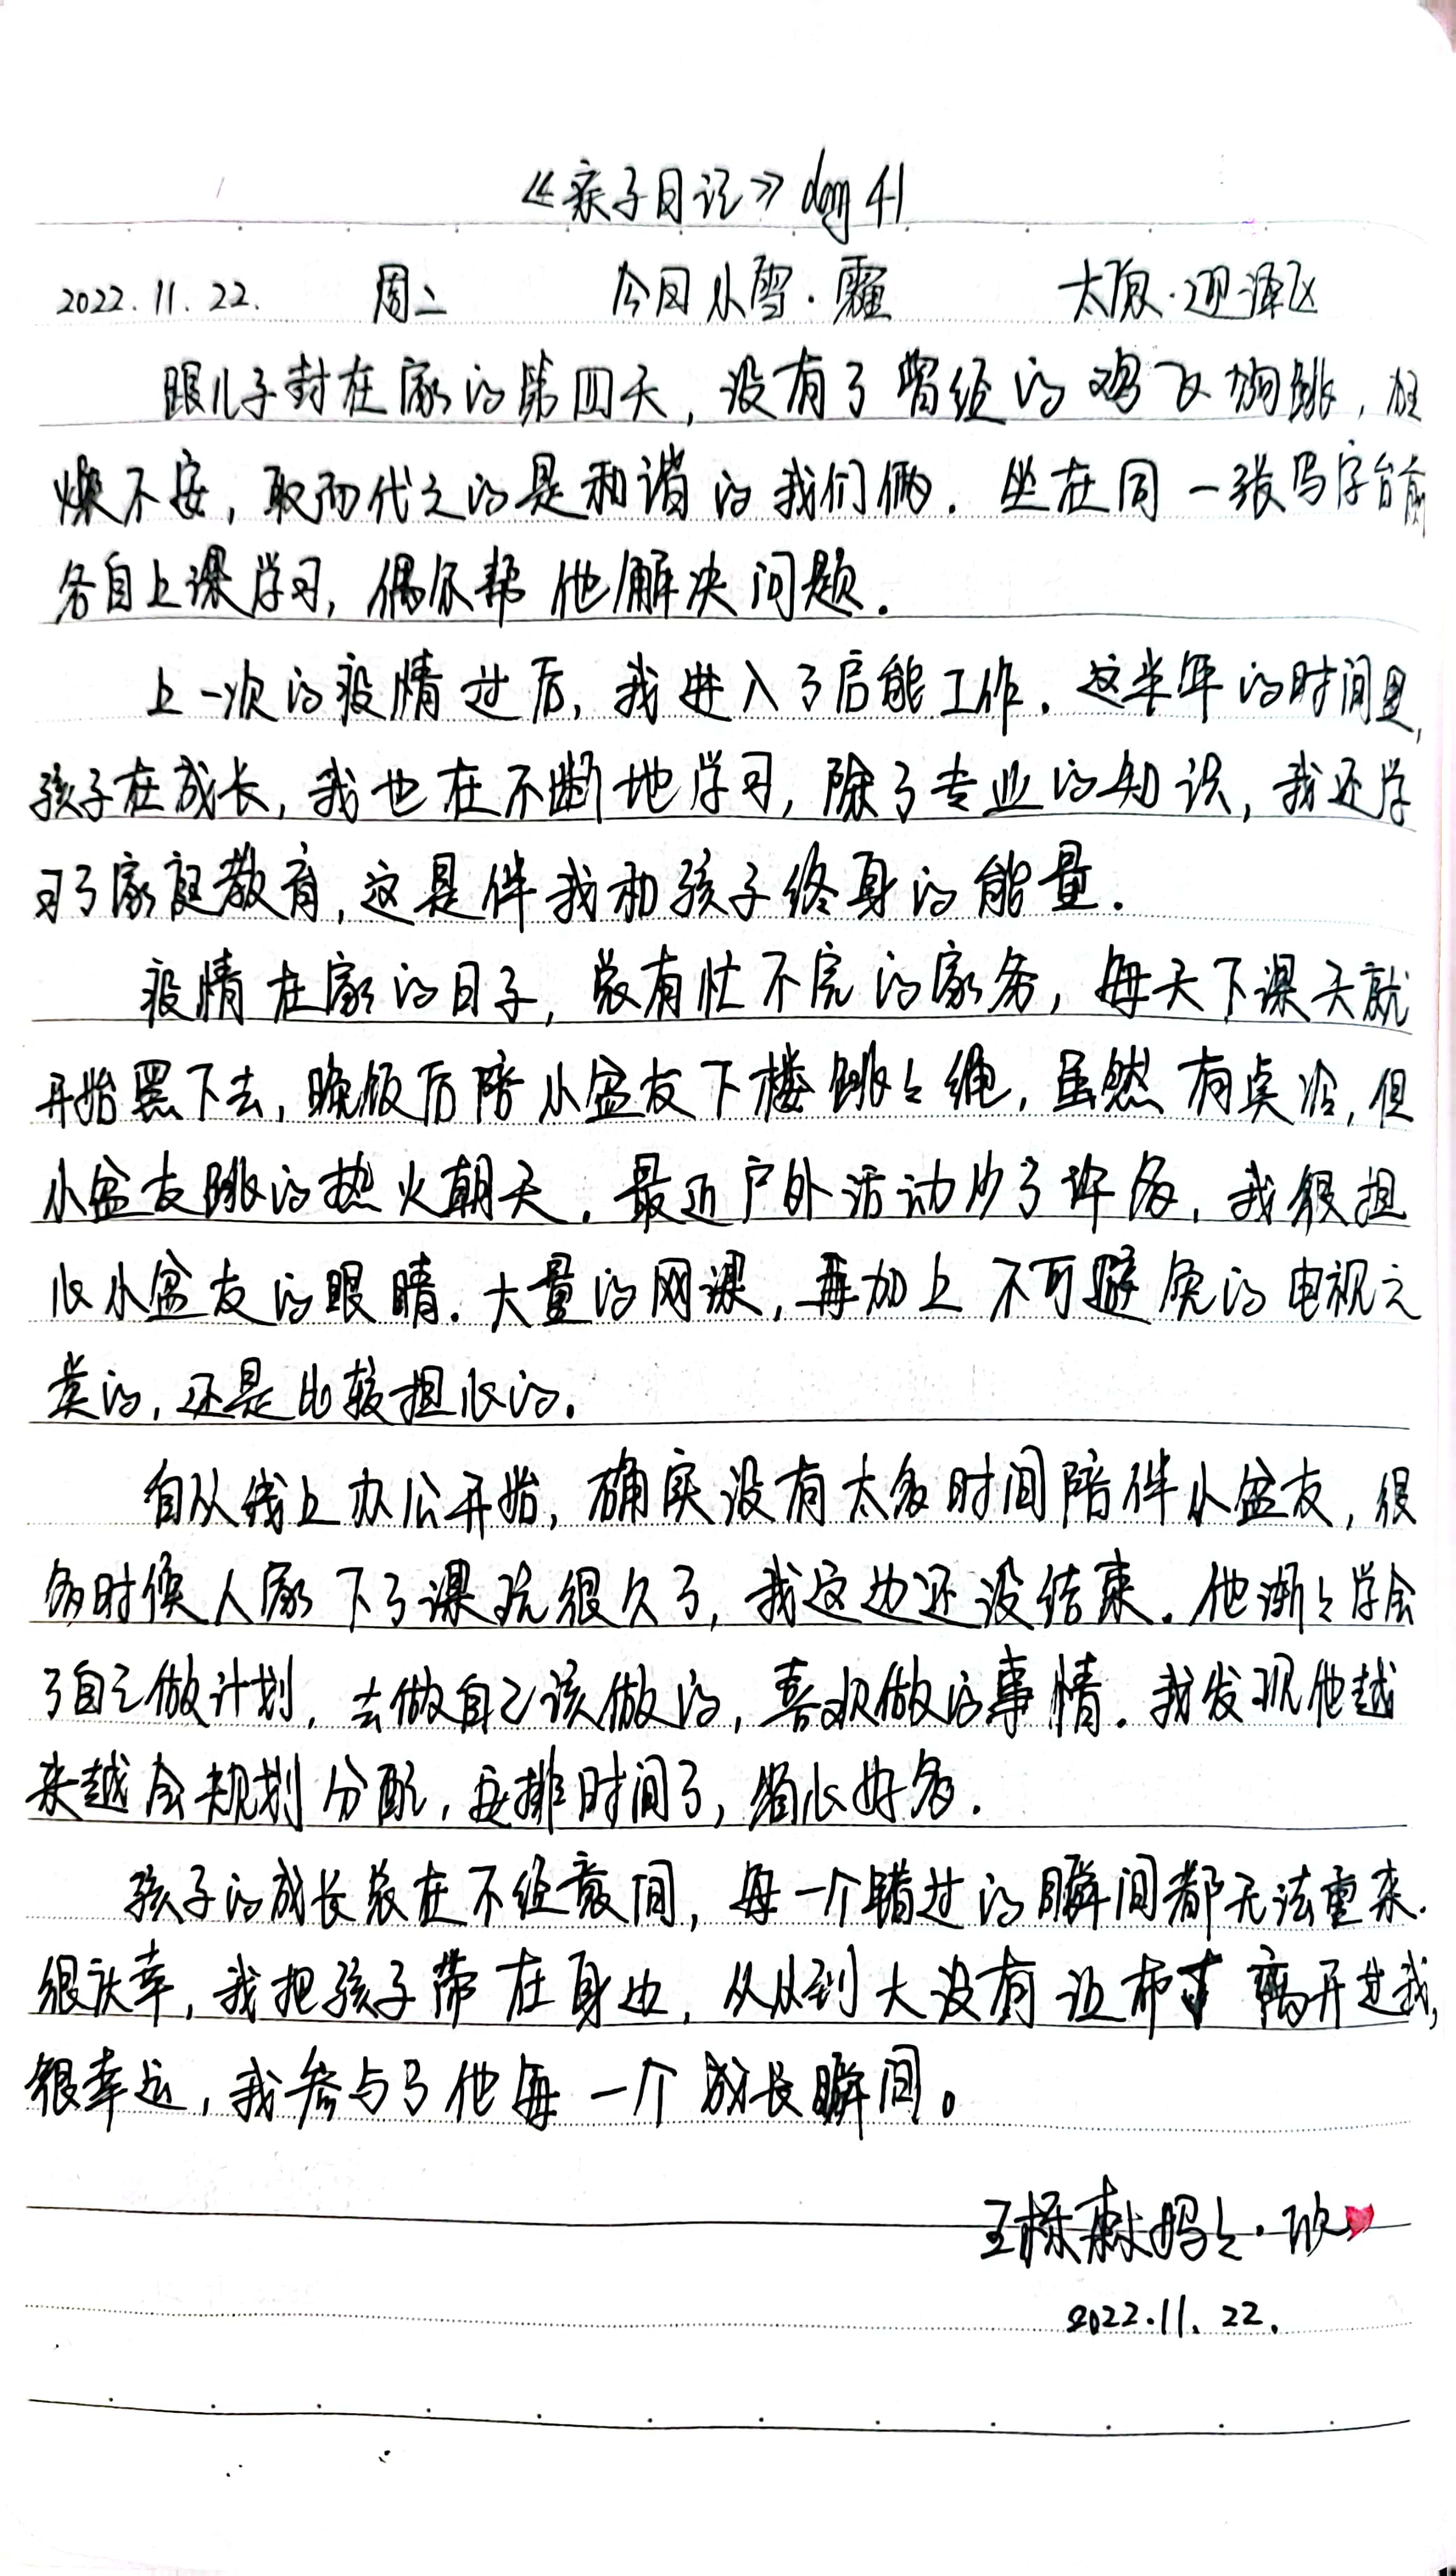 《亲子日记》day 41
2022.11.22. 周二 今日小雪·霾 太原·迎泽区
跟儿子封在家的第四天，没有了曾经的鸡飞狗跳，狂
燥不安，取而代之的是和谐的我们俩．坐在同一张写字台前
各自上课学习，偶尔帮他解决问题．
上一次的疫情过后，我进入了后能工作．这半年的时间里，
孩子在成长，我也在不断地学习，除了专业的知识，我还学
习了家庭教育，这是伴我和孩子终身的能量．
疫情在家的日子，总有忙不完的家务，每天下课天就
开始黑下去，晚饭后陪小盆友下楼跳々绳，虽然有点冷，但
小盆友跳的热火朝天．最近户外活动少了许多，我很担
心小盆友的眼睛．大量的网课，再加上不可避免的电视之
类的，还是比较担心的．
自从线上办公开始，确实没有太多时间陪伴小盆友，很
多时候人家下了课玩很久了，我这边还没结束．他渐々学会
了自己做计划，去做自己该做的，喜欢做的事情．我发现他越
来越会规划分配，安排时间了，省心好多．
孩子的成长总在不经意间，每一个错过的瞬间都无法重来．
很庆幸，我把孩子带在身边，从小到大没有让他离开过我，
很幸运，我参与了他每一个成长瞬间。
王栎森妈々·欣
2022.11.22.